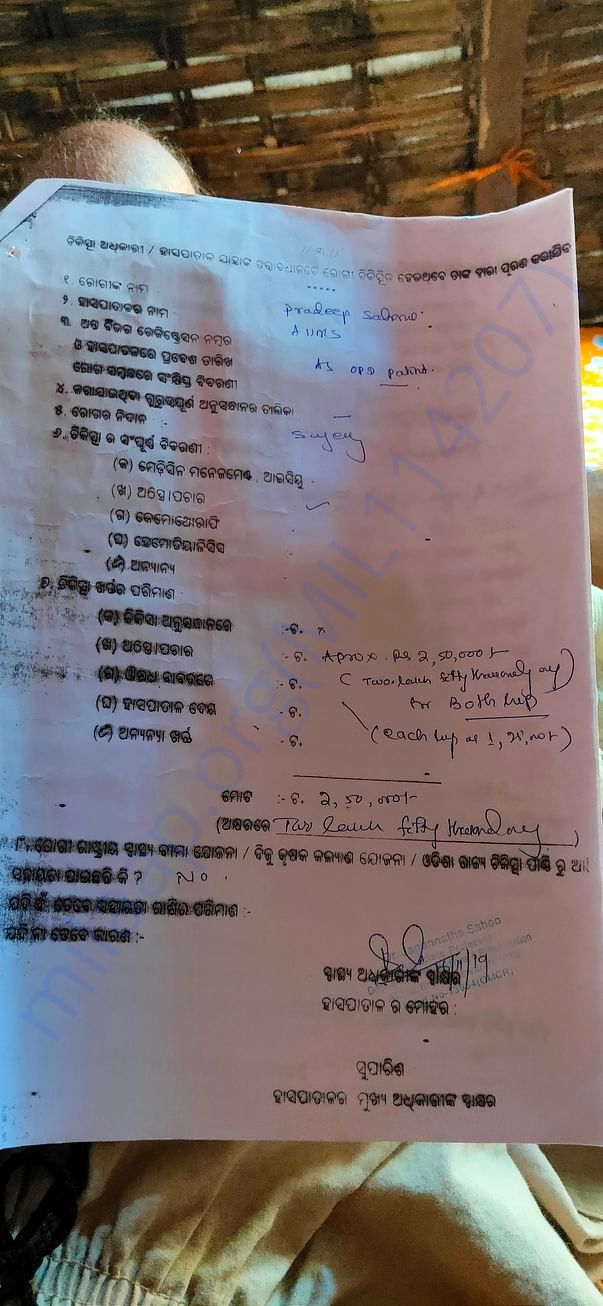 // ୩ //
ଚିକିତ୍ସା ଅଧିକାରୀ / ହାସପାତାଳ ଯାହାଙ୍କ ତତ୍ତ୍ୱାବଧାନରେ ରୋଗୀ ଚିକିତ୍ସିତ ହେଉଅଛନ୍ତି ତାଙ୍କ ଦ୍ୱାରା ପୂରଣ କରାଯିବ
୧. ରୋଗୀଙ୍କ ନାମ Pradeep Sahoo.
୨. ହାସପାତାଳର ନାମ AIIMS
୩. ଅନ୍ତ ବିଭାଗ ରେଜିଷ୍ଟ୍ରେସନ ନମ୍ବର
ଓ ହାସପାତାଳରେ ପ୍ରବେଶ ତାରିଖ As OPD patient.
ରୋଗ ସମ୍ବନ୍ଧରେ ସଂକ୍ଷିପ୍ତ ବିବରଣୀ
୪. କରାଯାଇଥିବା ଗୁରୁତ୍ୱପୂର୍ଣ ଅନୁସନ୍ଧାନର ତାଲିକା
୫. ରୋଗର ନିଦାନ :-
୬. ଚିକିତ୍ସା ର ସଂପୂର୍ଣ ବିବରଣୀ :
(କ) ମେଡ଼ିସିନ ମନେଜମେଣ୍ଟ, ଆଇସିୟୁ -
(ଖ) ଅସ୍ତ୍ରୋପଚାର
(ଗ) କେମୋଥେରାଫି
(ଘ) ହେମୋଡିୟାଳିସିସ
(ଙ) ଅନ୍ୟାନ୍ୟ
୭. ଚିକିତ୍ସା ଖର୍ଚ୍ଚର ପରିମାଣ :
(କ) ଚିକିତ୍ସା ଅନୁସନ୍ଧାନରେ :-ଟ. x
(ଖ) ଅସ୍ତ୍ରୋପଚାର :-ଟ. Aprox. Rs 2,50,000/-
(ଗ) ଔଷଧ ବାବଦରେ :-ଟ. ( Two lakh fifty thousand only)
(ଘ) ହାସପାତାଳ ଦେୟ :-ଟ. for Both hip
(ଙ) ଅନ୍ୟାନ୍ୟ ଖର୍ଚ୍ଚ :-ଟ. (each hip at 1,25,000/-)
ମୋଟ :-ଟ. 2,50,000/-
(ଅକ୍ଷରରେ Two lakh fifty thousand only)
୮. ରୋଗୀ ରାଷ୍ଟ୍ରୀୟ ସ୍ୱାସ୍ଥ୍ୟ ବୀମା ଯୋଜନା / ବିଜୁ କୃଷକ କଲ୍ୟାଣ ଯୋଜନା / ଓଡିଶା ରାଜ୍ୟ ଚିକିତ୍ସା ପାଣ୍ଠି ରୁ
ସହାୟତା ପାଇଛନ୍ତି କି ? No.
ଯଦି ହଁ ତେବେ ସହାୟତା ରାଶିର ପରିମାଣ :-
ଯଦି ନା ତେବେ କାରଣ :-
Dr. Jagannatha Sahoo
ସ୍ୱାସ୍ଥ୍ୟ ଅଧିକାରୀଙ୍କ ସ୍ୱାକ୍ଷର
ହାସପାତାଳ ର ମୋହର :
ସୁପାରିଶ
ହାସପାତାଳର ମୁଖ୍ୟ ଅଧିକାରୀଙ୍କ ସ୍ୱାକ୍ଷର
milaap.org(MIL1142207)